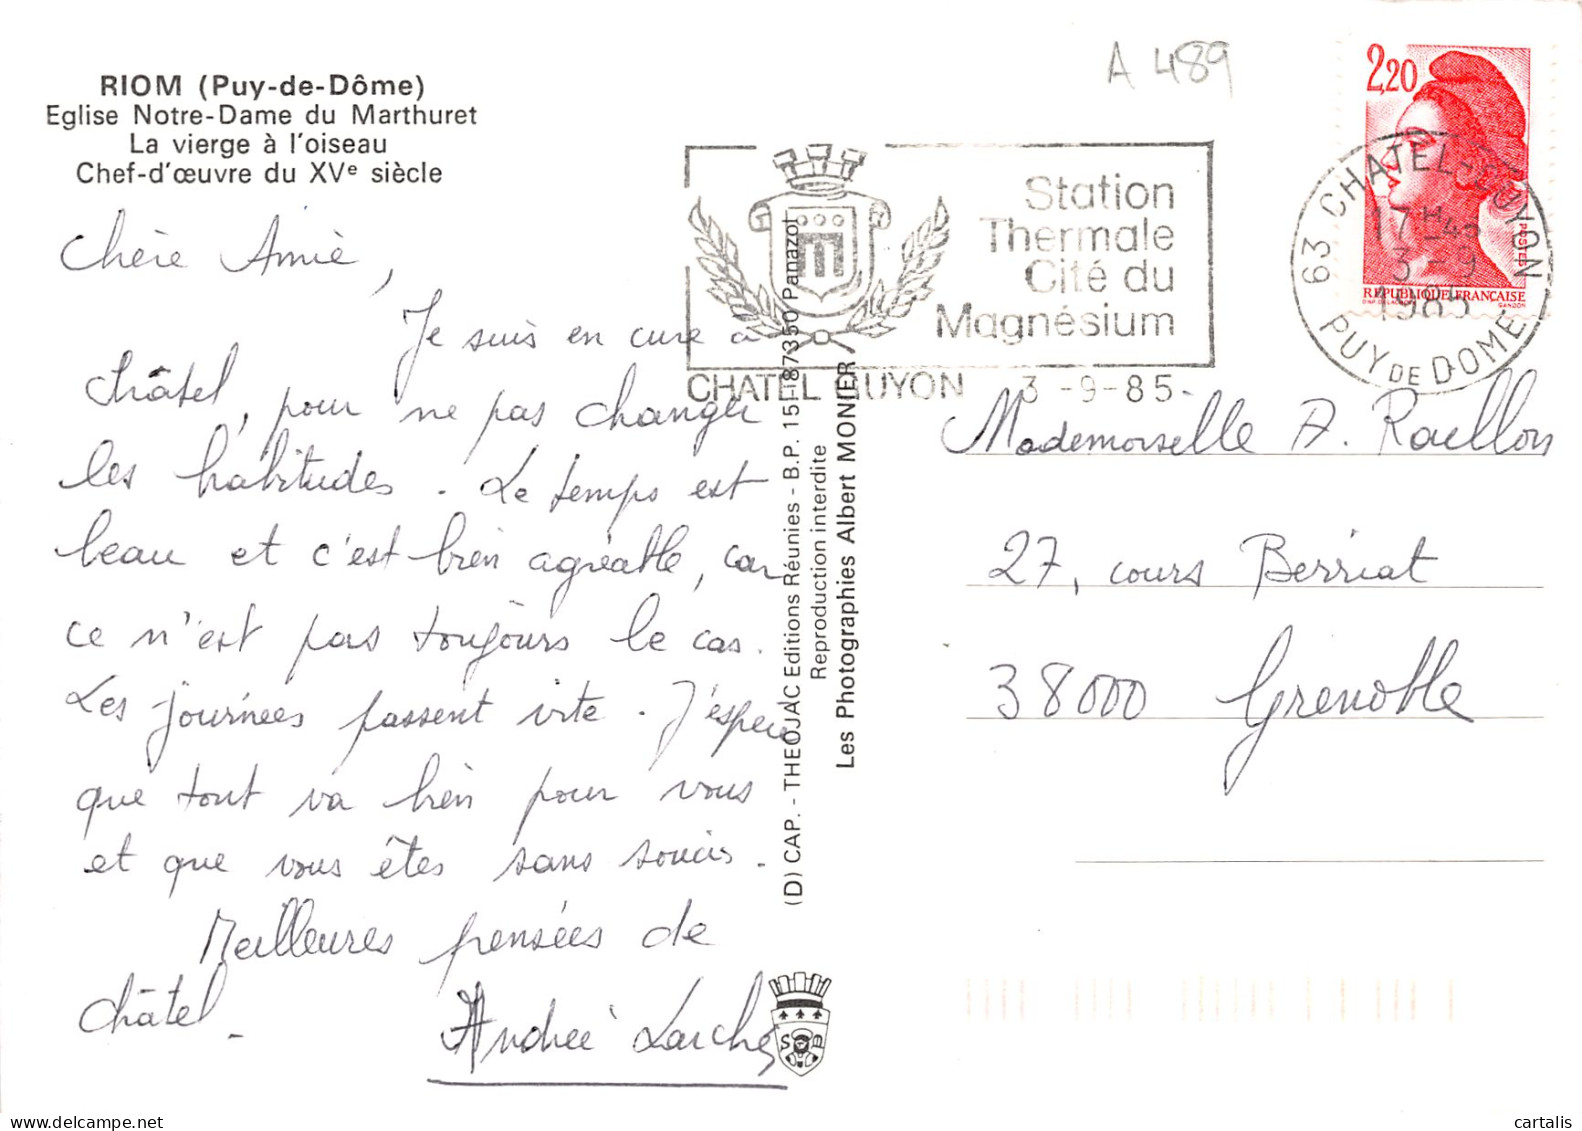 RIOM (Puy-de-Dôme)
Eglise Notre-Dame du Marthuret
La vierge à l'oiseau
Chef-d'œuvre du XVe siècle
Chère Amie,
Je suis en cure à
Châtel, pour ne pas changer
les habitudes. Le temps est
beau et c'est bien agréable, car
ce n'est pas toujours le cas.
Les journées passent vite. J'espère
que tout va bien pour vous
et que vous êtes sans soucis.
Meilleures pensées de
Châtel.
Andrée Larché
(D) CAP. - THEOJAC Editions Réunies - B.P. 15 - 87350 Panazol
Reproduction interdite
Les Photographies Albert MONIER
A 489
Station
Thermale
Cité du
Magnésium
CHATEL GUYON 3-9-85-
2,20
POSTES
REPUBLIQUE FRANÇAISE
GANDON
63 CHATEL-GUYON
17H45
3-9
1985
PUY DE DOME
Mademoiselle A. Raellon
27, cours Berriat
38000 Grenoble
cartalis